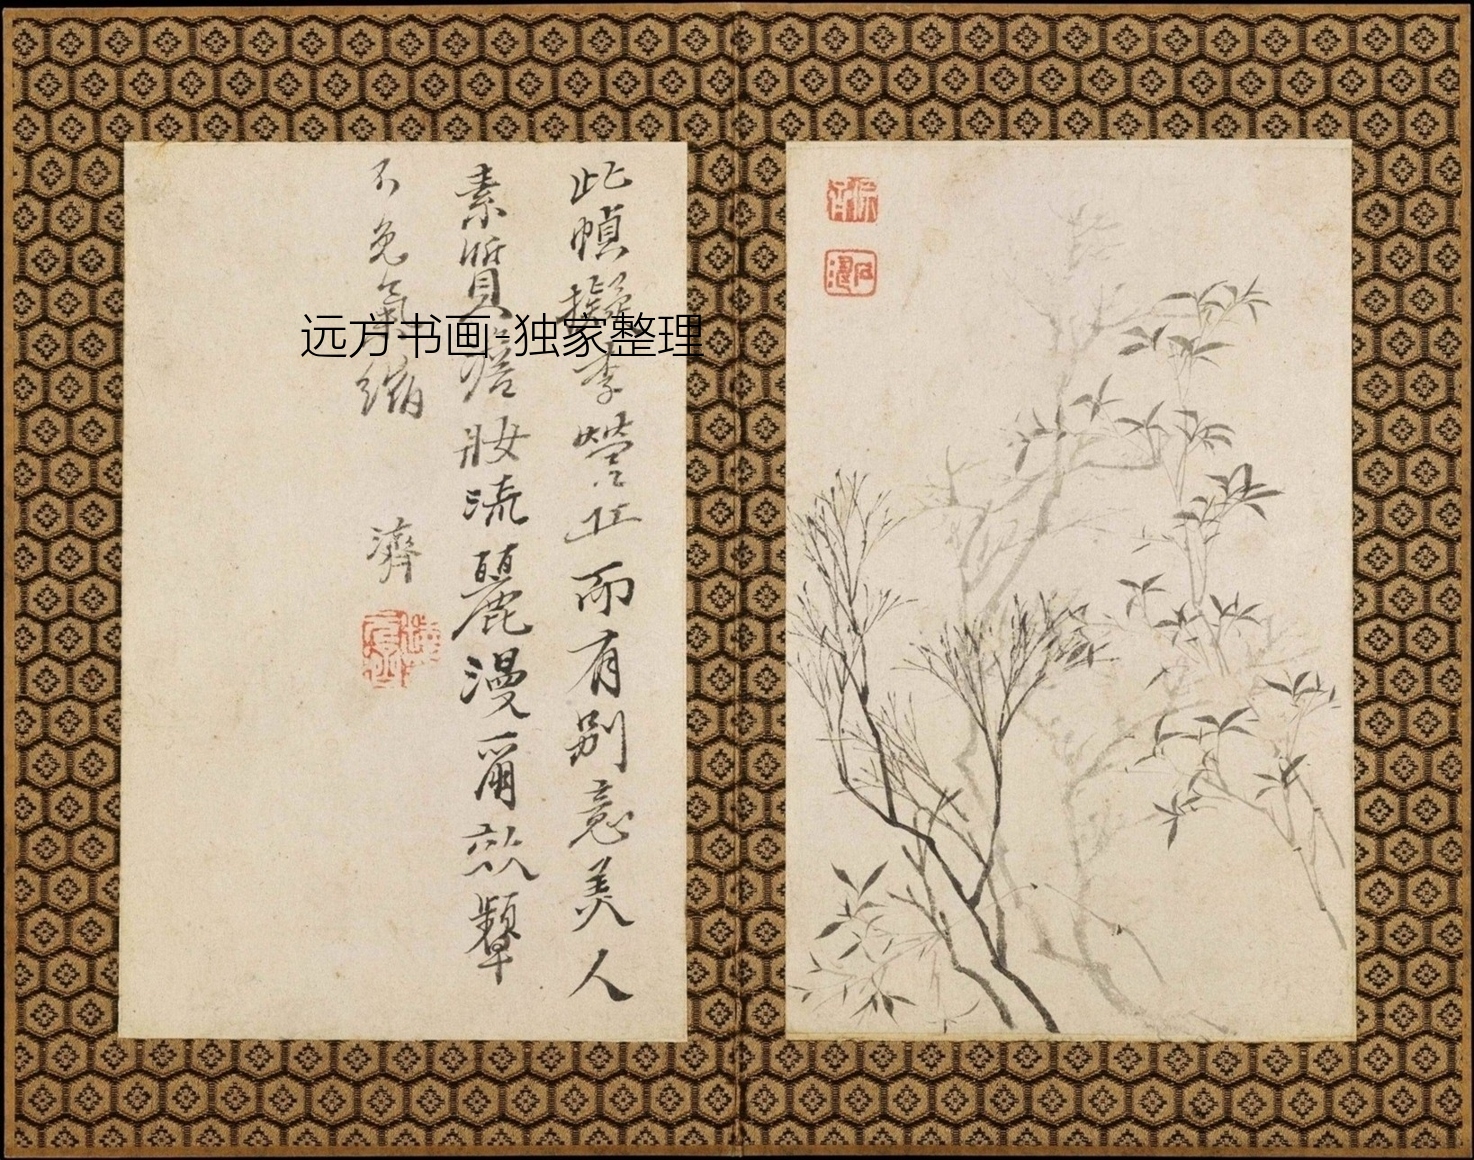 此幀擬李營丘而有別意美人
素質澹妝流麗漫爾效顰
不免氣縮
濟
远方书画-独家整理